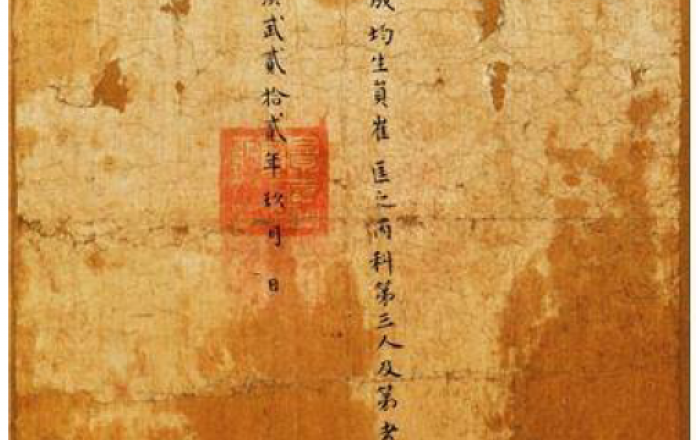 成均生員崔匡之丙科第三人及第者
武貳拾貳年玖月日